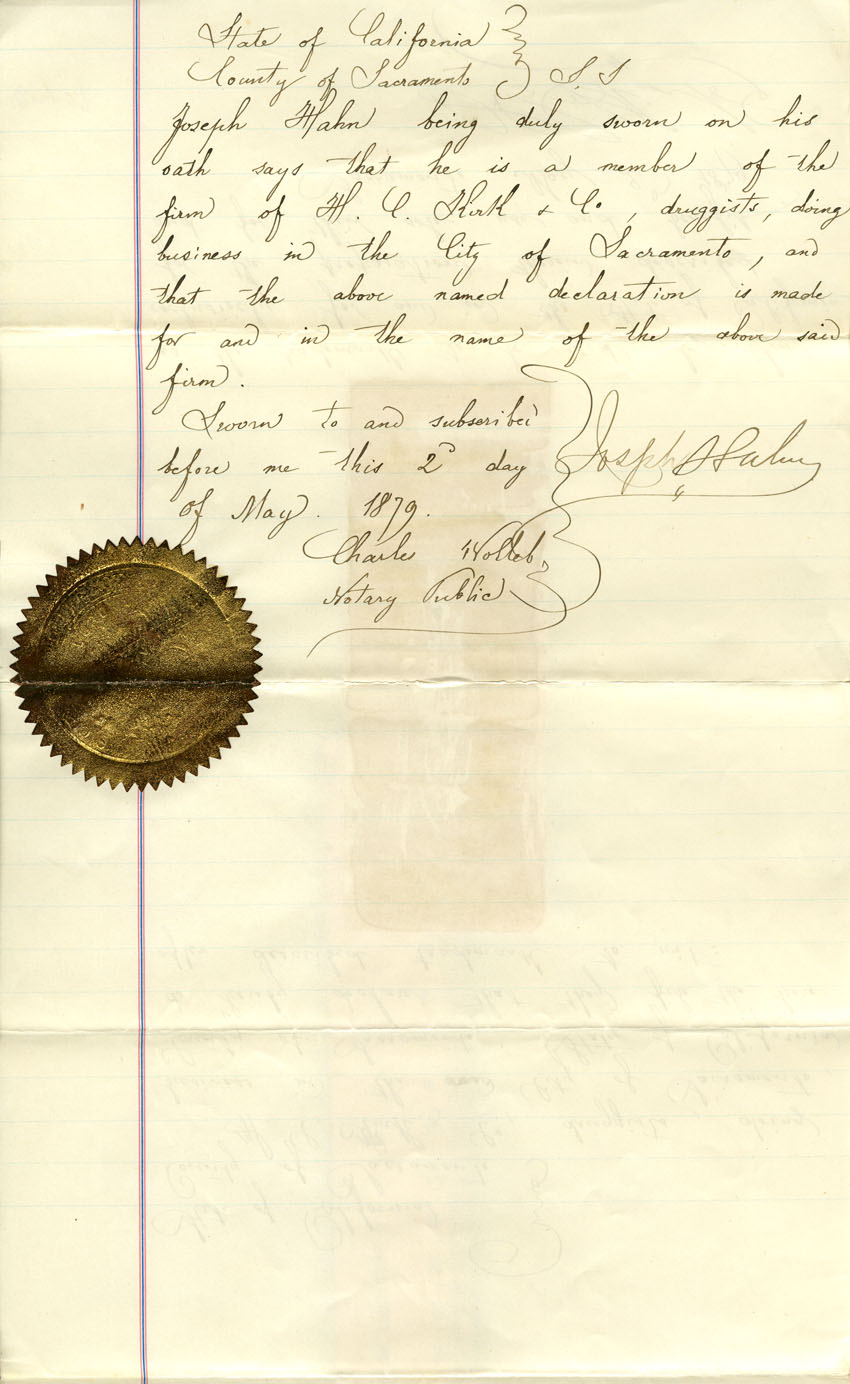 State of California
County of Sacramento } S.S
Joseph Hahn being duly sworn on his
oath says that he is a member of the
firm of H. C. Kirk & Co , druggists, doing
business in the City of Sacramento, and
that the above named declaration is made
for and in the name of the above said
firm.
Sworn to and subscribed
before me this 2d day
of May. 1879.
Joseph Hahn
Charles Wolleb,
Notary Public